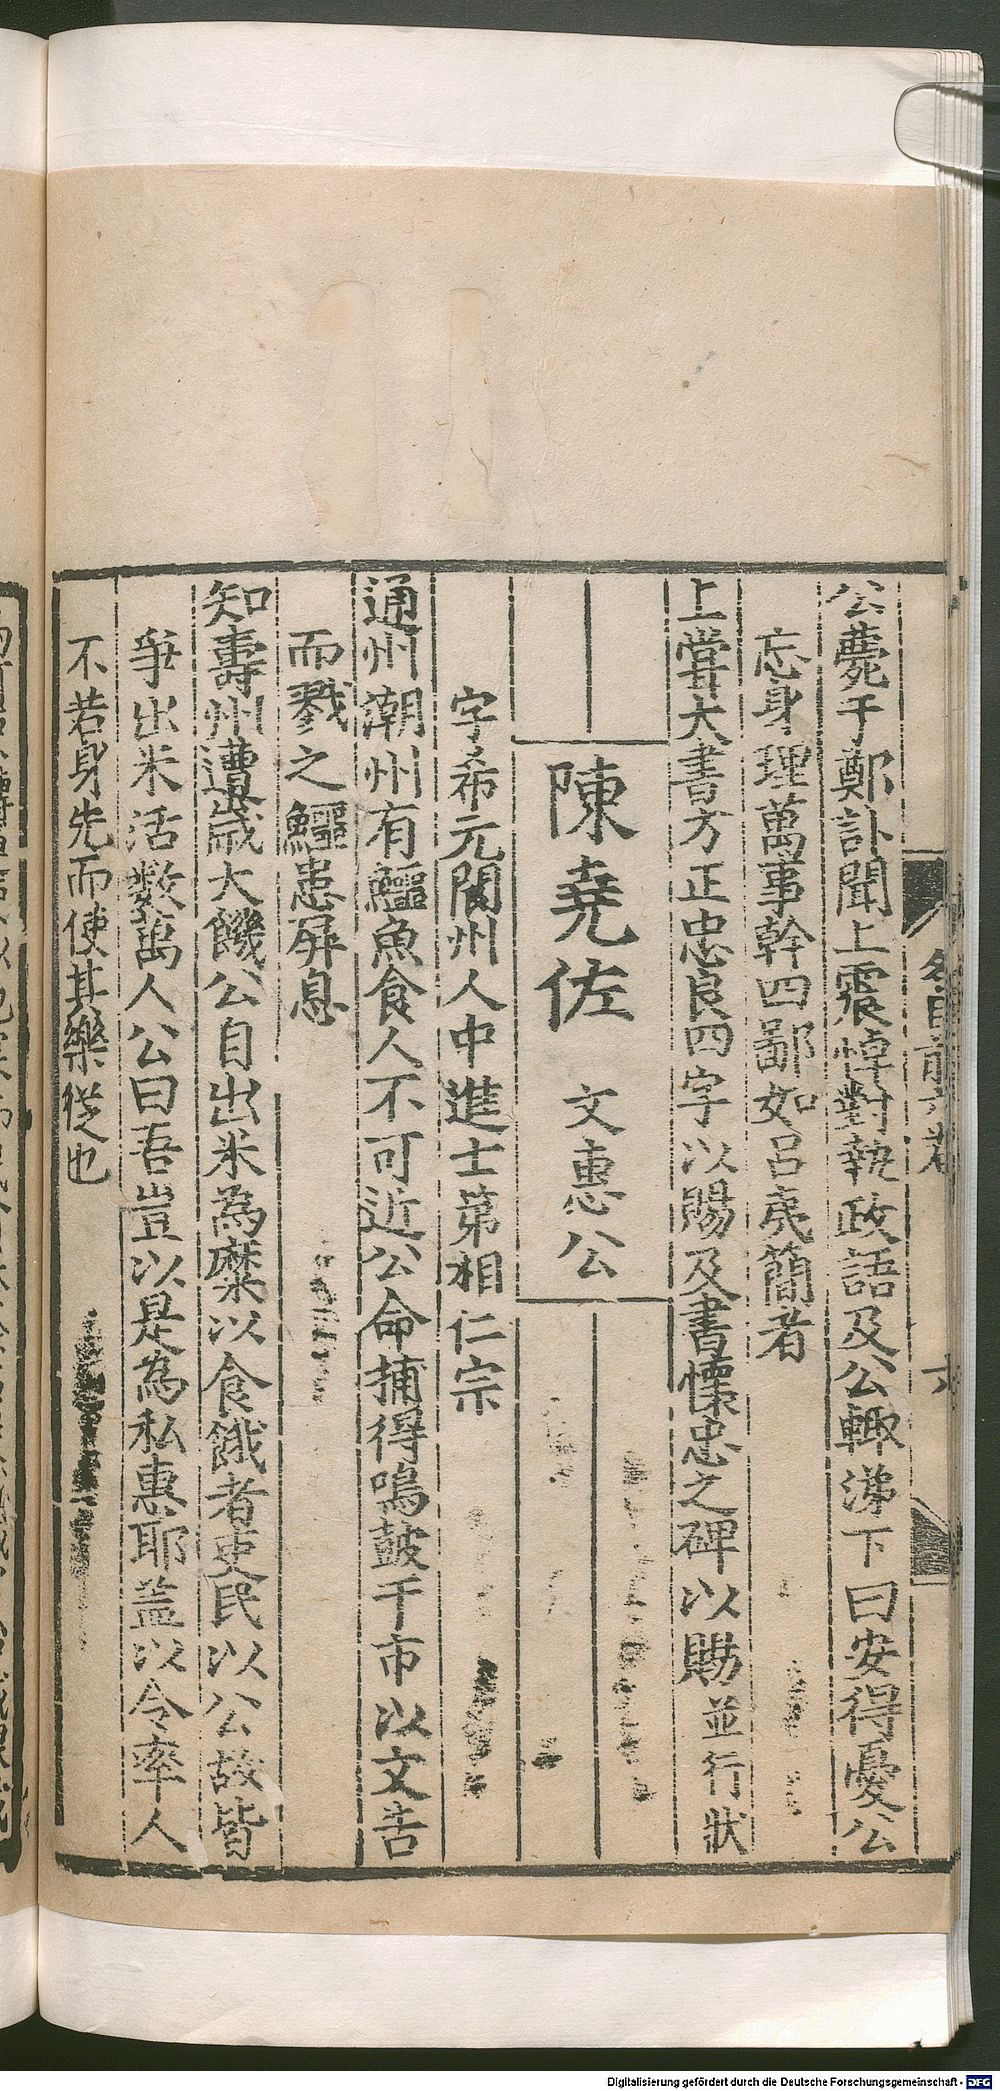 公薨于鄭訃聞上震悼對執政語及公輙涕下曰安得憂公
忘身理萬事幹四鄙如呂夷簡者
上嘗大書方正忠良四字以賜及書懷忠之碑以賜並行狀
陳堯佐 文惠公
字希元閬州人中進士第相仁宗
通州潮州有鱷魚食人不可近公命捕得鳴鼓于市以文告
而戮之鱷患屏息
知壽州遭歲大饑公自出米為糜以食餓者吏民以公故皆
爭出米活数萬人公曰吾豈以是為私惠耶盖以令率人
不若身先而使其樂從也
Digitalisierung gefördert durch die Deutsche Forschungsgemeinschaft - DFG